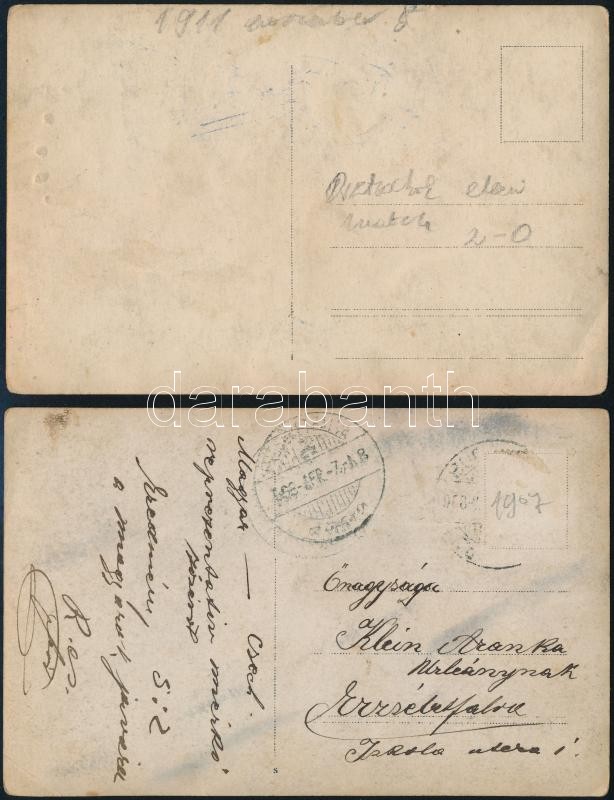 1911 november 8
Osztrákok elleni
match 2-0
darabanth
Magyar — Cseh
reprezentativ mérkő
Eredmény 5:2
a magyarok javára
R. cs.
1907
Őnagysága
Klein Aranka
Urleánynak
Erzsébetfalva
Iskola utcza 1.